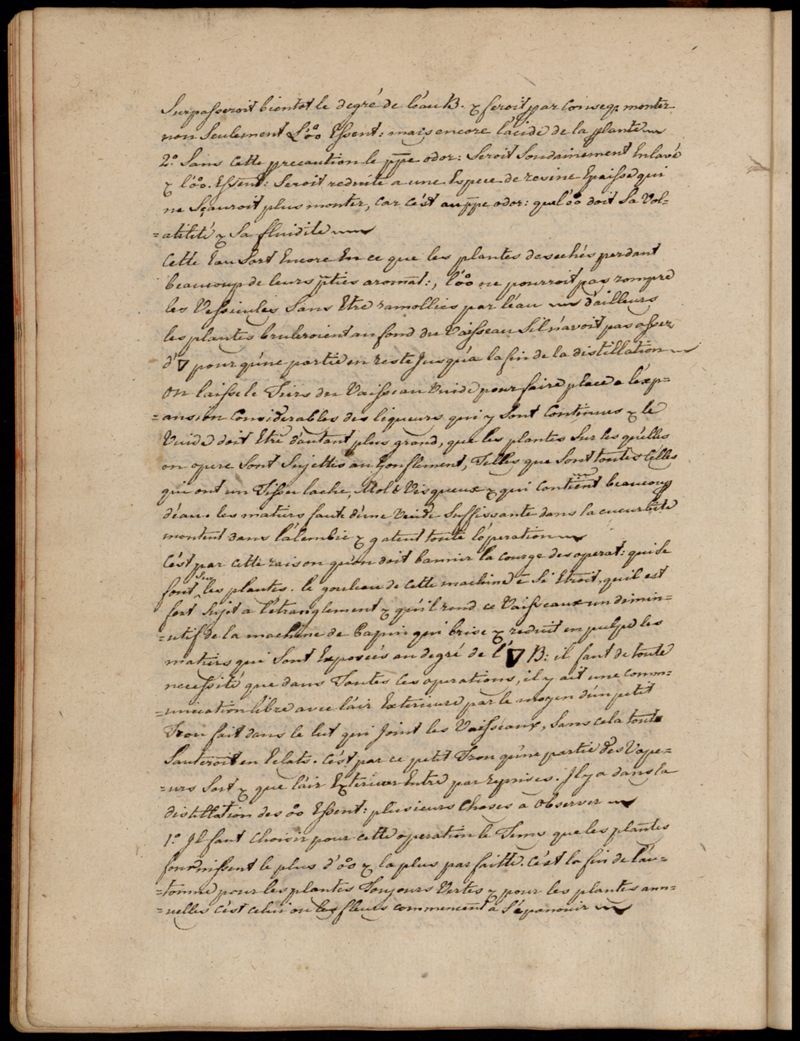 Surpasseroit bientot le degré de l'eau B. & feroit par conseq. monter
non seulement l'oo Essent: mais encore l'acide de la plante
2.° Sans cette precaution le ppe odor: seroit soudainement Enlevé
& l'oo. Essent: seroit reduite a une Espece de resine Epaisse qui
ne sçauroit plus monter, car c'est au ppe odor: que l'oo doit sa vol-
=atilité & sa fluidité
Cette Eau sert Encore En ce que les plantes desechés perdant
beaucoup de leurs pties aromat:, l'oo ne pourroit pas rompre
les Vessicules sans Etre ramollies par l'eau d'ailleurs
les plantes bruleroient au fond du Vaisseau s'il n'avoit pas assez
d'▽ pour qu'une partie en reste jusqu'a la fin de la distillation
on laisse le Tiers du Vaisseau Vuide pour faire place a l'exp-
=ansion considerables des liqueurs qui y sont contenues & le
Vuide doit Etre d'autant plus grand, que les plantes sur les qu'elles
on opere sont sujettes au gonflement, Telles que sont toutes celles
qui ont un Tissu lache, Mol & Visqueux & qui contiennt beaucoup
d'eau. les matiers faute d'une Vuide suffissante dans la cucurbite
montent dans l'alembic & gatent toute l'operation
C'est par cette raison qu'on doit bannir la courge des operat: qui se
font sur les plantes. le gouleau de cette machine e si Etroit, qu'il est
fort sujet a l'etranglement & qu'il rend ce Vaisseaux un dimin-
=utif de la machine de Papin qui brise & reduit en pulpe les
matiers qui sont Exposées au degré de l'▽ B: il faut de toute
necessité que dans Toutes ces operations, il y ait une comm-
=unication libre avec l'air Exterieure par le moyen d'un petit
Trou fait dans le lut qui joint les Vaisseaux, sans cela tout
Sauteroit en Eclats. C'est par ce petit Trou qu'une partie des Vape-
=urs sort & que l'air Exterieur Entre par reprises. Il y a dans la
distillation des oo Essent: plusieurs choses a observer
1.° Il faut choisir pour cette operation le Tems que les plantes
fournissent le plus d'oo & la plus parfaitte. C'est la fin de l'au-
=tomne pour les plantes Toujours Vertes & pour les plantes ann-
=uelles c'est celui ou les fleurs commencent à s'épanouir